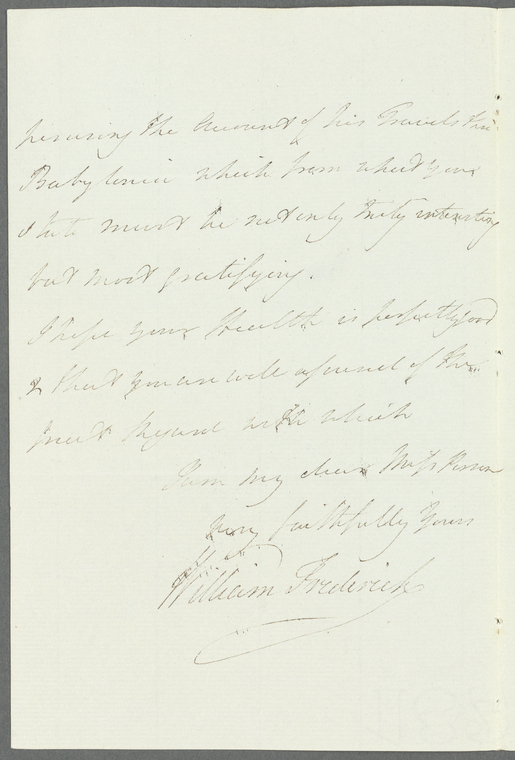 perusing the Account of his Travels thro
Babylonia which from what you
state must be not only truly interesting
but most gratifying.
I hope your Health is perfectly good
& that you are well assured of the
great Regard with which
I am my dear Miss Porter
Very faithfully Yours
William Frederick